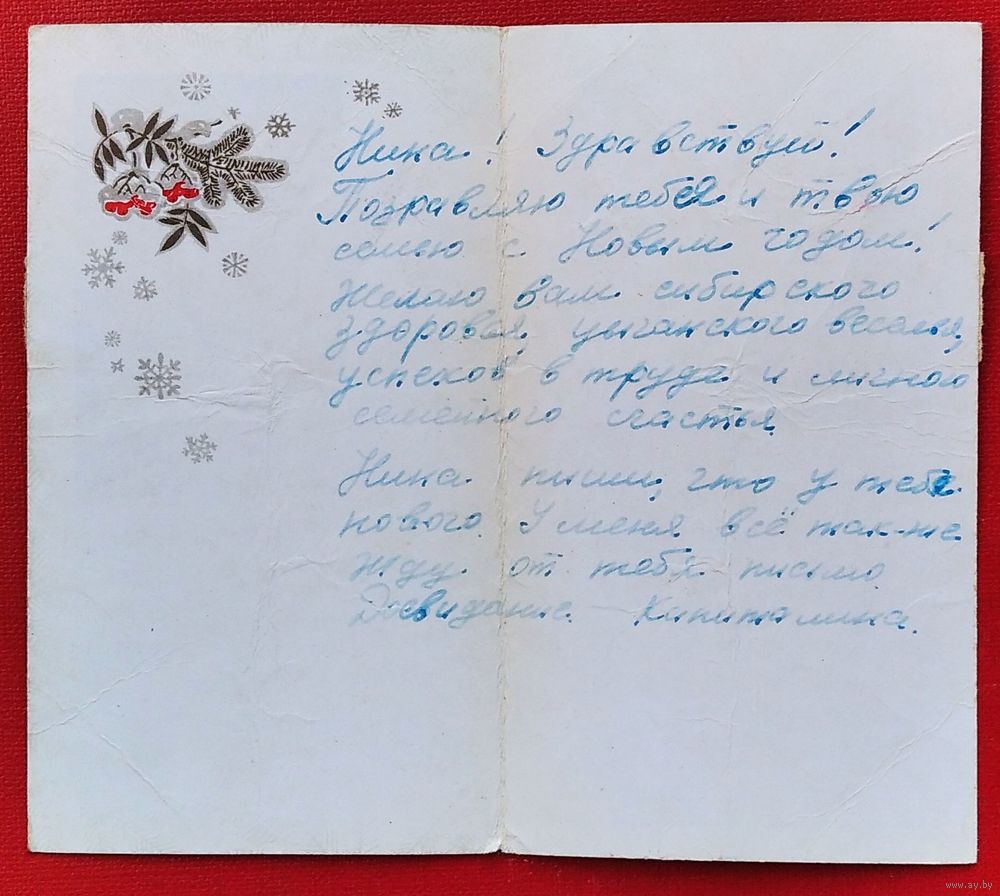 Нина! Здравствуй!
Поздравляю тебея и твою
семью с Новым годом!
Желаю вам сибирского
здоровья, цыганского веселья,
успехов в труде и личного
семейного счастья.
Нина пиши, что у тебе
нового. У меня всё так-же
жду от тебя письмо.
Досвидание. Капиталина.
www.ay.by